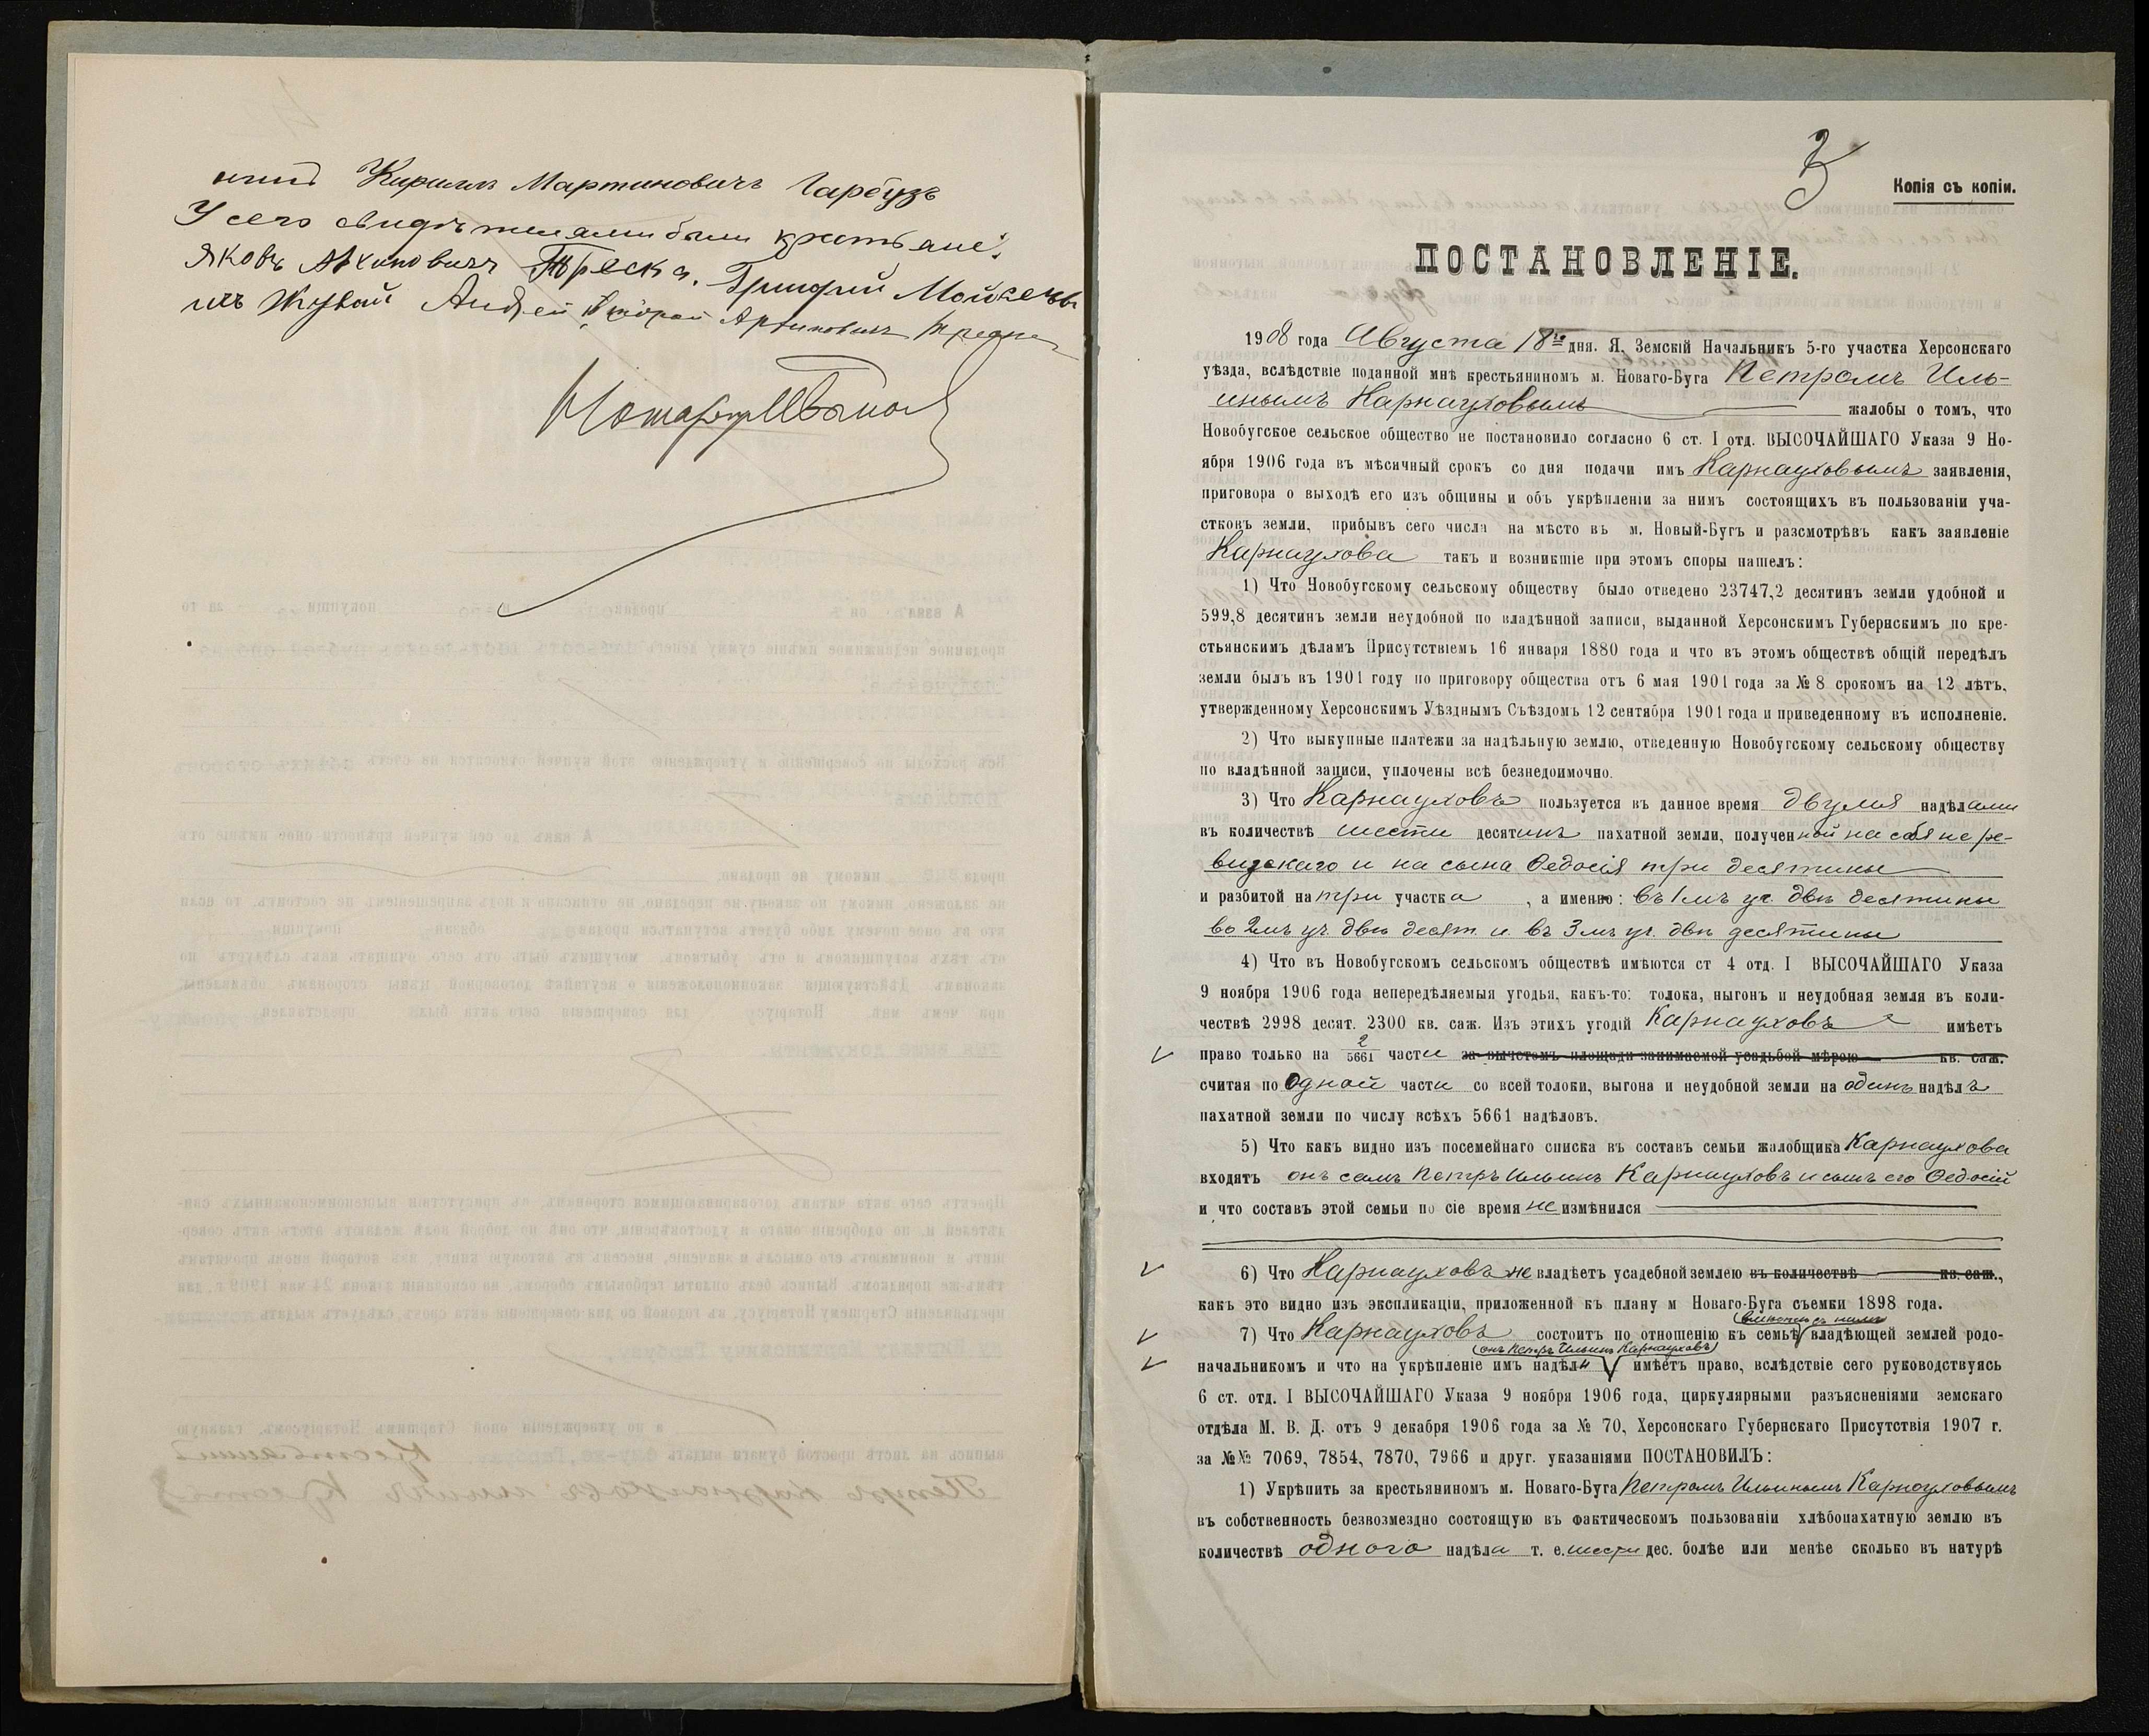 Кириллъ Мартиновичъ Гарбузъ
У сего свидѣтелями были крестьяне:
Яковъ Архиповичъ Треска, Григорій Мойсееви
ичъ Жувай Андрей
Нотаріусъ Иванов
3
Копія съ копіи.
ПОСТАНОВЛЕНІЕ.
1908 года Августа 18го дня. Я, Земскій Начальникъ 5-го участка Херсонскаго
уѣзда, вслѣдствіе поданной мнѣ крестьяниномъ м. Новаго-Буга Петромъ Иль-
инымъ Карнауховымъ жалобы о томъ, что
Новобугское сельское общество не постановило согласно 6 ст. I отд. ВЫСОЧАЙШАГО Указа 9 Но-
ября 1906 года въ мѣсячный срокъ со дня подачи имъ Карнауховымъ заявленія,
приговора о выходѣ его изъ общины и объ укрѣпленіи за нимъ состоящихъ въ пользованіи уча-
стковъ земли, прибывъ сего числа на мѣсто въ м. Новый-Бугъ и разсмотрѣвъ какъ заявленіе
Карнаухова такъ и возникшіе при этомъ споры нашелъ:
1) Что Новобугскому сельскому обществу было отведено 23747,2 десятинъ земли удобной и
599,8 десятинъ земли неудобной по владѣнной записи, выданной Херсонскимъ Губернскимъ по кре-
стьянскимъ дѣламъ Присутствіемъ 16 января 1880 года и что въ этомъ обществѣ общій передѣлъ
земли былъ въ 1901 году по приговору общества отъ 6 мая 1901 года за № 8 срокомъ на 12 лѣтъ,
утвержденному Херсонскимъ Уѣзднымъ Съѣздомъ 12 сентября 1901 года и приведенному въ исполненіе.
2) Что выкупные платежи за надѣльную землю, отведенную Новобугскому сельскому обществу
по владѣнной записи, уплочены всѣ безнедоимочно.
3) Что Карнауховъ пользуется въ данное время двумя надѣлами
въ количествѣ шести десятинъ пахатной земли, полученной на себя не ре-
визскаго и на сына Ѳедосія три десятины
и разбитой на три участка , а именно: въ 1мъ уч. двѣ десятины
во 2мъ уч. двѣ десят. и въ 3мъ уч. двѣ десятины
4) Что въ Новобугскомъ сельскомъ обществѣ имѣются ст 4 отд. I ВЫСОЧАЙШАГО Указа
9 ноября 1906 года непередѣляемыя угодья, какъ-то: толока, ныгонъ и неудобная земля въ коли-
чествѣ 2998 десят. 2300 кв. саж. Изъ этихъ угодій Карнауховъ имѣетъ
право только на 2/5661 части за вычетомъ площади занимаемой усадьбой мѣрою кв. саж.
считая по одной части со всей толоки, выгона и неудобной земли на одинъ надѣлъ
пахатной земли по числу всѣхъ 5661 надѣловъ.
5) Что какъ видно изъ посемейнаго списка въ составъ семьи жалобщика Карнаухова
входятъ онъ самъ Петръ Ильинъ Карнауховъ и сынъ его Ѳедосій
и что составъ этой семьи по сіе время не измѣнился
6) Что Карнауховъ не владѣетъ усадебной землею въ количествѣ кв. саж.,
какъ это видно изъ экспликаціи, приложенной къ плану м Новаго-Буга съемки 1898 года.
вмѣстѣ съ нимъ
7) Что Карнауховъ состоитъ по отношенію къ семьѣ владѣющей землей родо-
онъ Петръ Ильинъ Карнауховъ
начальникомъ и что на укрѣпленіе имъ надѣла имѣетъ право, вслѣдствіе сего руководствуясь
6 ст. отд. I ВЫСОЧАЙШАГО Указа 9 ноября 1906 года, циркулярными разъясненіями земскаго
отдѣла М. В. Д. отъ 9 декабря 1906 года за № 70, Херсонскаго Губернскаго Присутствія 1907 г.
за №№ 7069, 7854, 7870, 7966 и друг. указаніями ПОСТАНОВИЛЪ:
1) Укрѣпить за крестьяниномъ м. Новаго-Буга Петромъ Ильинымъ Карнауховымъ
въ собственность безвозмездно состоящую въ фактическомъ пользованіи хлѣбопахатную землю въ
количествѣ одного надѣла т. е. шести дес. болѣе или менѣе сколько въ натурѣ